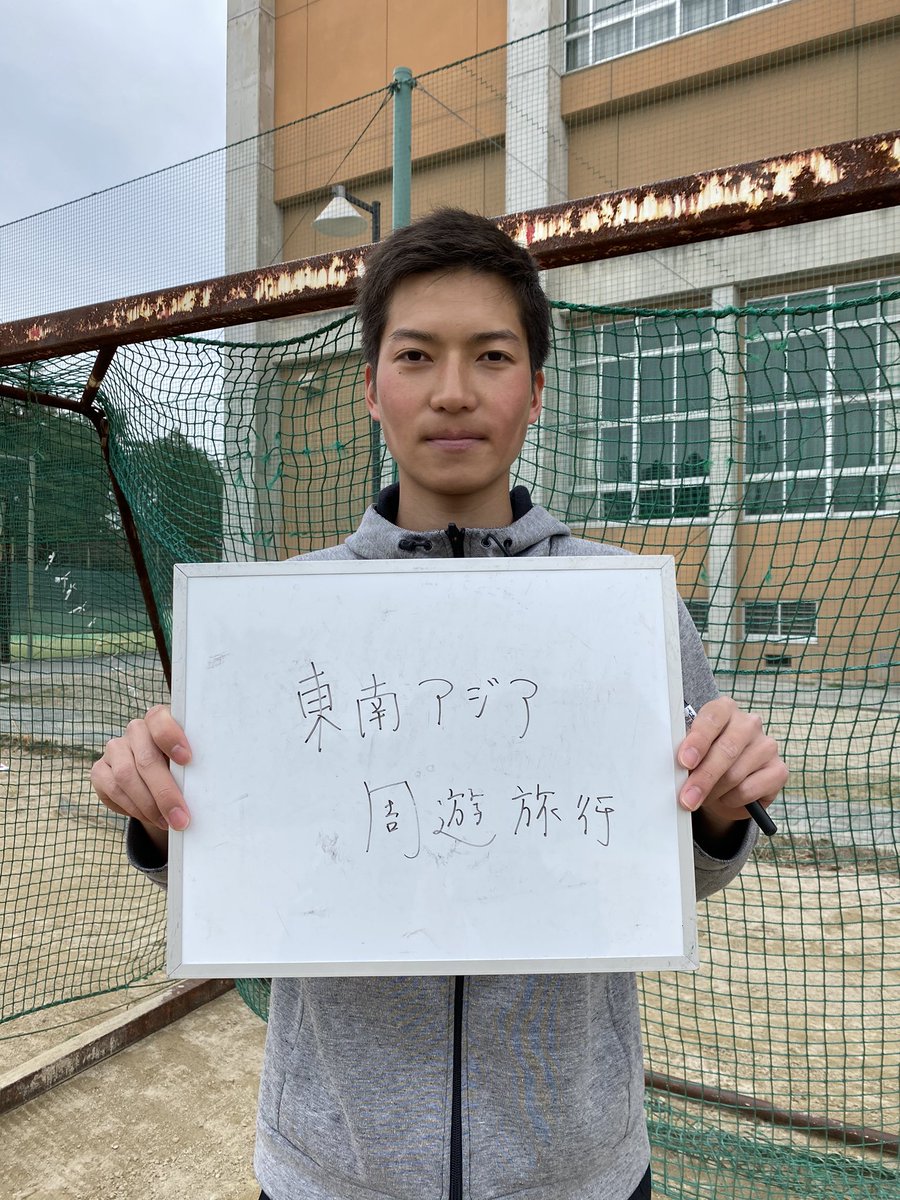 東南アジア
周遊旅行